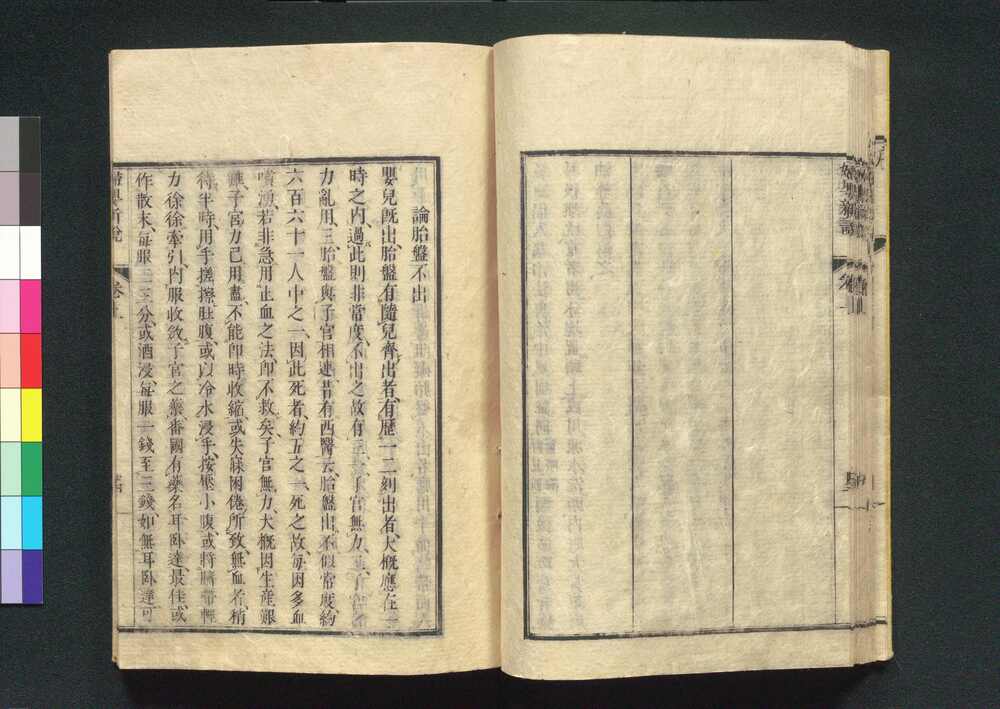 婦嬰新說
論胎盤不出
嬰兒既出胎盤有隨兒齊出者有歷一二刻出者大概應在一
時之內過此則非常度不出之故有三一子宮無力二子宮
力亂用三胎盤與子宮相連昔有西醫云胎盤出不似常度約
六百六十一人中之一因此死者約五之一死之故每因多血
噴湧若非急用止血之法卽不救矣子宮無力大概因生產艱
難子宮力已用盡不能卽時收縮或失寐困倦所致無血者稍
待半時用手搓擦肚腹或以冷水浸手按壓小腹或將臍帶輕
力徐徐牽引內服收斂子宮之藥番國有藥名耳臥達最佳或
作散末每服二三分或酒浸每服一錢至三錢如無耳臥達可
嬰新說